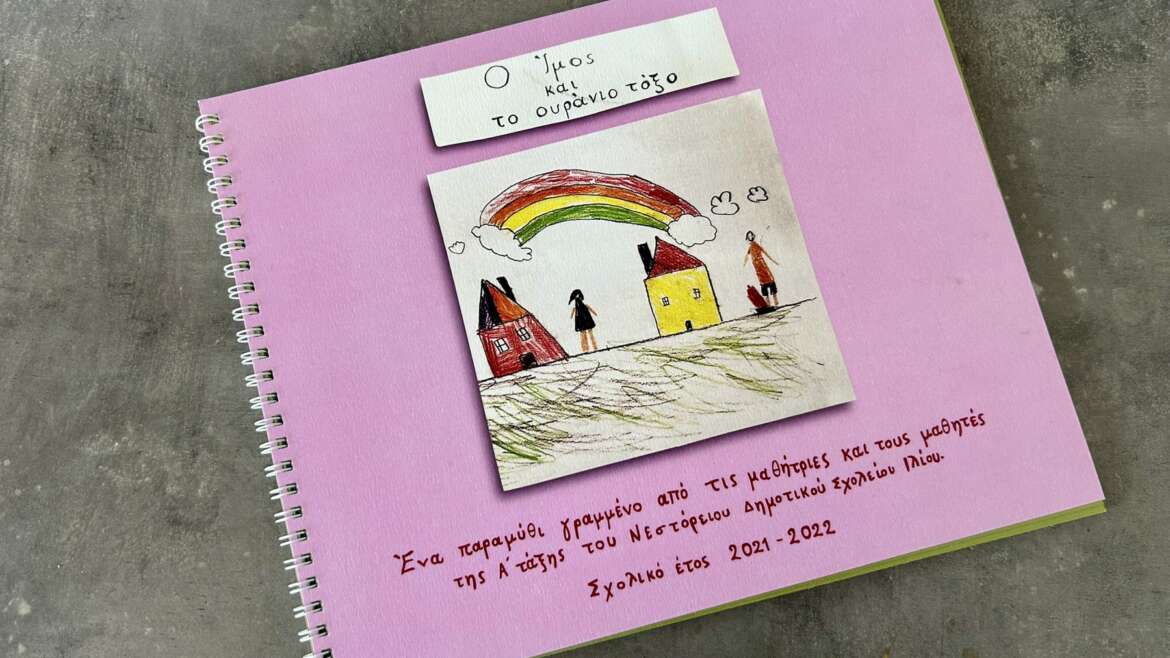 Ο Ίμος
και
το ουράνιο τόξο
Ένα παραμύθι γραμμένο από τις μαθήτριες και τους μαθητές
της Α΄ τάξης του Νεστόρειου Δημοτικού Σχολείου Ιλίου.
Σχολικό έτος 2021-2022